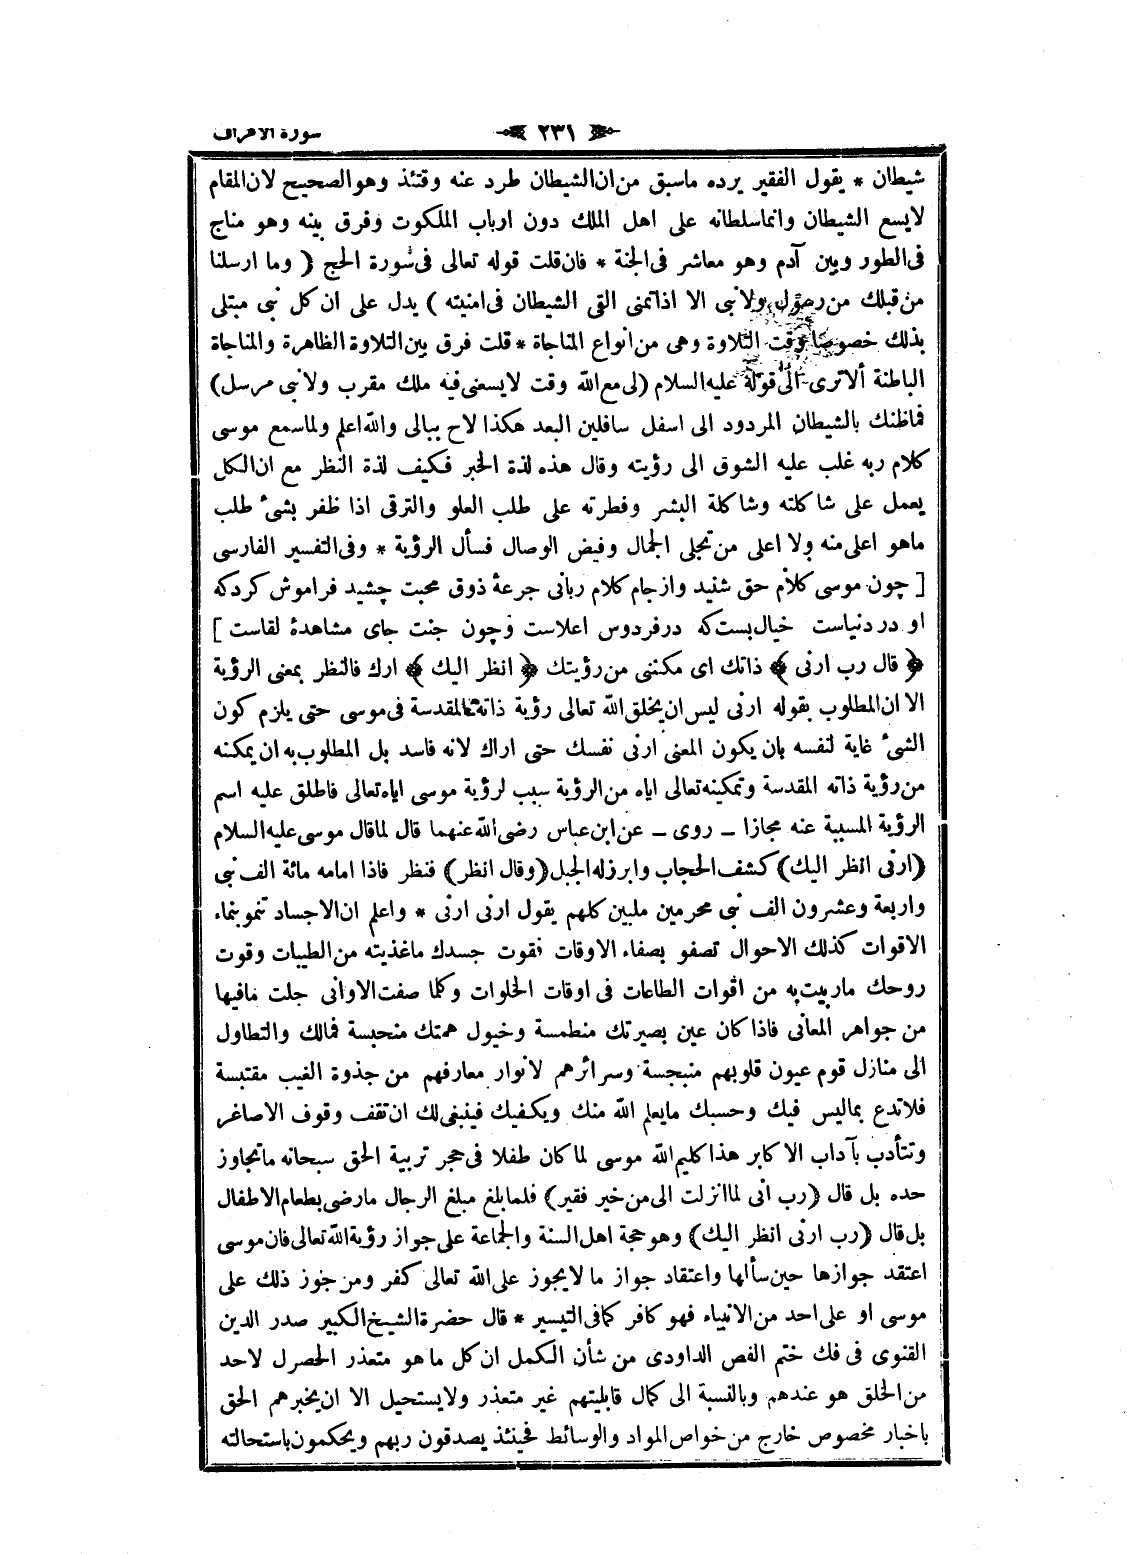 سورة الاعراف
٢٣١
شيطان * يقول الفقير يرده ماسبق من ان الشيطان طرد عنه وقتئذ وهو الصحيح لان المقام
لايسع الشيطان وانما سلطانه على اهل الملك دون ارباب الملكوت وفرق بينه وهو مناج
فى الطور وبين آدم وهو معاشر فى الجنة * فان قلت قوله تعالى فى سورة الحج ( وما ارسلنا
من قبلك من رسول ولا نبى الا اذا تمنى القى الشيطان فى امنيته ) يدل على ان كل نبى مبتلى
بذلك خصوصا وقت التلاوة وهى من انواع المناجاة * قلت فرق بين التلاوة الظاهرة والمناجاة
الباطنة ألا ترى الى قوله عليه السلام (لى مع الله وقت لا يسعنى فيه ملك مقرب ولا نبى مرسل)
فما ظنك بالشيطان المردود الى اسفل سافلين البعد هكذا لاح ببالى والله اعلم ولما سمع موسى
كلام ربه غلب عليه الشوق الى رؤيته وقال هذه لذة الخبر فكيف لذة النظر مع ان الكل
يعمل على شاكلته وشاكلة البشر وفطرته على طلب العلو والترقى اذا ظفر بشئ طلب
ماهو اعلى منه ولا اعلى من تجلى الجمال وفيض الوصال فسأل الرؤية * وفى التفسير الفارسى
[ چون موسى كلام حق شنيد واز جام كلام ربانى جرعهٔ ذوق محبت چشيد فراموش كرد كه
او در دنياست خيال بست كه در فردوس اعلاست وچون جنت جاى مشاهدهٔ لقاست ]
﴿ قال رب ارنى ﴾ ذاتك اى مكننى من رؤيتك ﴿ انظر اليك ﴾ ارك فالنظر بمعنى الرؤية
الا ان المطلوب بقوله ارنى ليس ان يخلق الله تعالى رؤية ذاته المقدسة فى موسى حتى يلزم كون
الشئ غاية لنفسه بان يكون المعنى ارنى نفسك حتى اراك لانه فاسد بل المطلوب به ان يمكنه
من رؤية ذاته المقدسة وتمكينه تعالى اياه من الرؤية سبب لرؤية موسى اياه تعالى فاطلق عليه اسم
الرؤية المسببة عنه مجازا ـ روى ـ عن ابن عباس رضى الله عنهما قال لما قال موسى عليه السلام
(ارنى انظر اليك) كشف الحجاب وابرز له الجبل (وقال انظر) فنظر فاذا امامه مائة الف نبى
واربعة وعشرون الف نبى محرمين ملبين كلهم يقول ارنى ارنى * واعلم ان الاجساد تنمو بنماء
الاقوات كذلك الاحوال تصفو بصفاء الاوقات فقوت جسدك ماغذيته من الطيبات وقوت
روحك ماربيت به من اقوات الطاعات فى اوقات الخلوات وكلما صفت الاوانى جلت مافيها
من جواهر المعانى فاذا كان عين بصيرتك منطمسة وخيول همتك منحبسة فمالك والتطاول
الى منازل قوم عيون قلوبهم منبجسة وسرائرهم لانوار معارفهم من جذوة الغيب مقتبسة
فلا تدع بما ليس فيك وحسبك مايعلم الله منك ويكفيك فينبغى لك ان تقف وقوف الاصاغر
وتتأدب بآداب الاكابر هذا كليم الله موسى لما كان طفلا فى حجر تربية الحق سبحانه ماتجاوز
حده بل قال (رب انى لما انزلت الى من خير فقير) فلما بلغ مبلغ الرجال مارضى بطعام الاطفال
بل قال (رب ارنى انظر اليك) وهو حجة اهل السنة والجماعة على جواز رؤية الله تعالى فان موسى
اعتقد جوازها حين سألها واعتقاد جواز ما لا يجوز على الله تعالى كفر ومن جوز ذلك على
موسى او على احد من الانبياء فهو كافر كما فى التيسير * قال حضرة الشيخ الكبير صدر الدين
القنوى فى فك ختم الفص الداودى من شأن الكمل ان كل ما هو متعذر الحصول لاحد
من الخلق هو عندهم وبالنسبة الى كمال قابليتهم غير متعذر ولا يستحيل الا ان يخبرهم الحق
باخبار مخصوص خارج من خواص المواد والوسائط فحينئذ يصدقون ربهم ويحكمون باستحالته